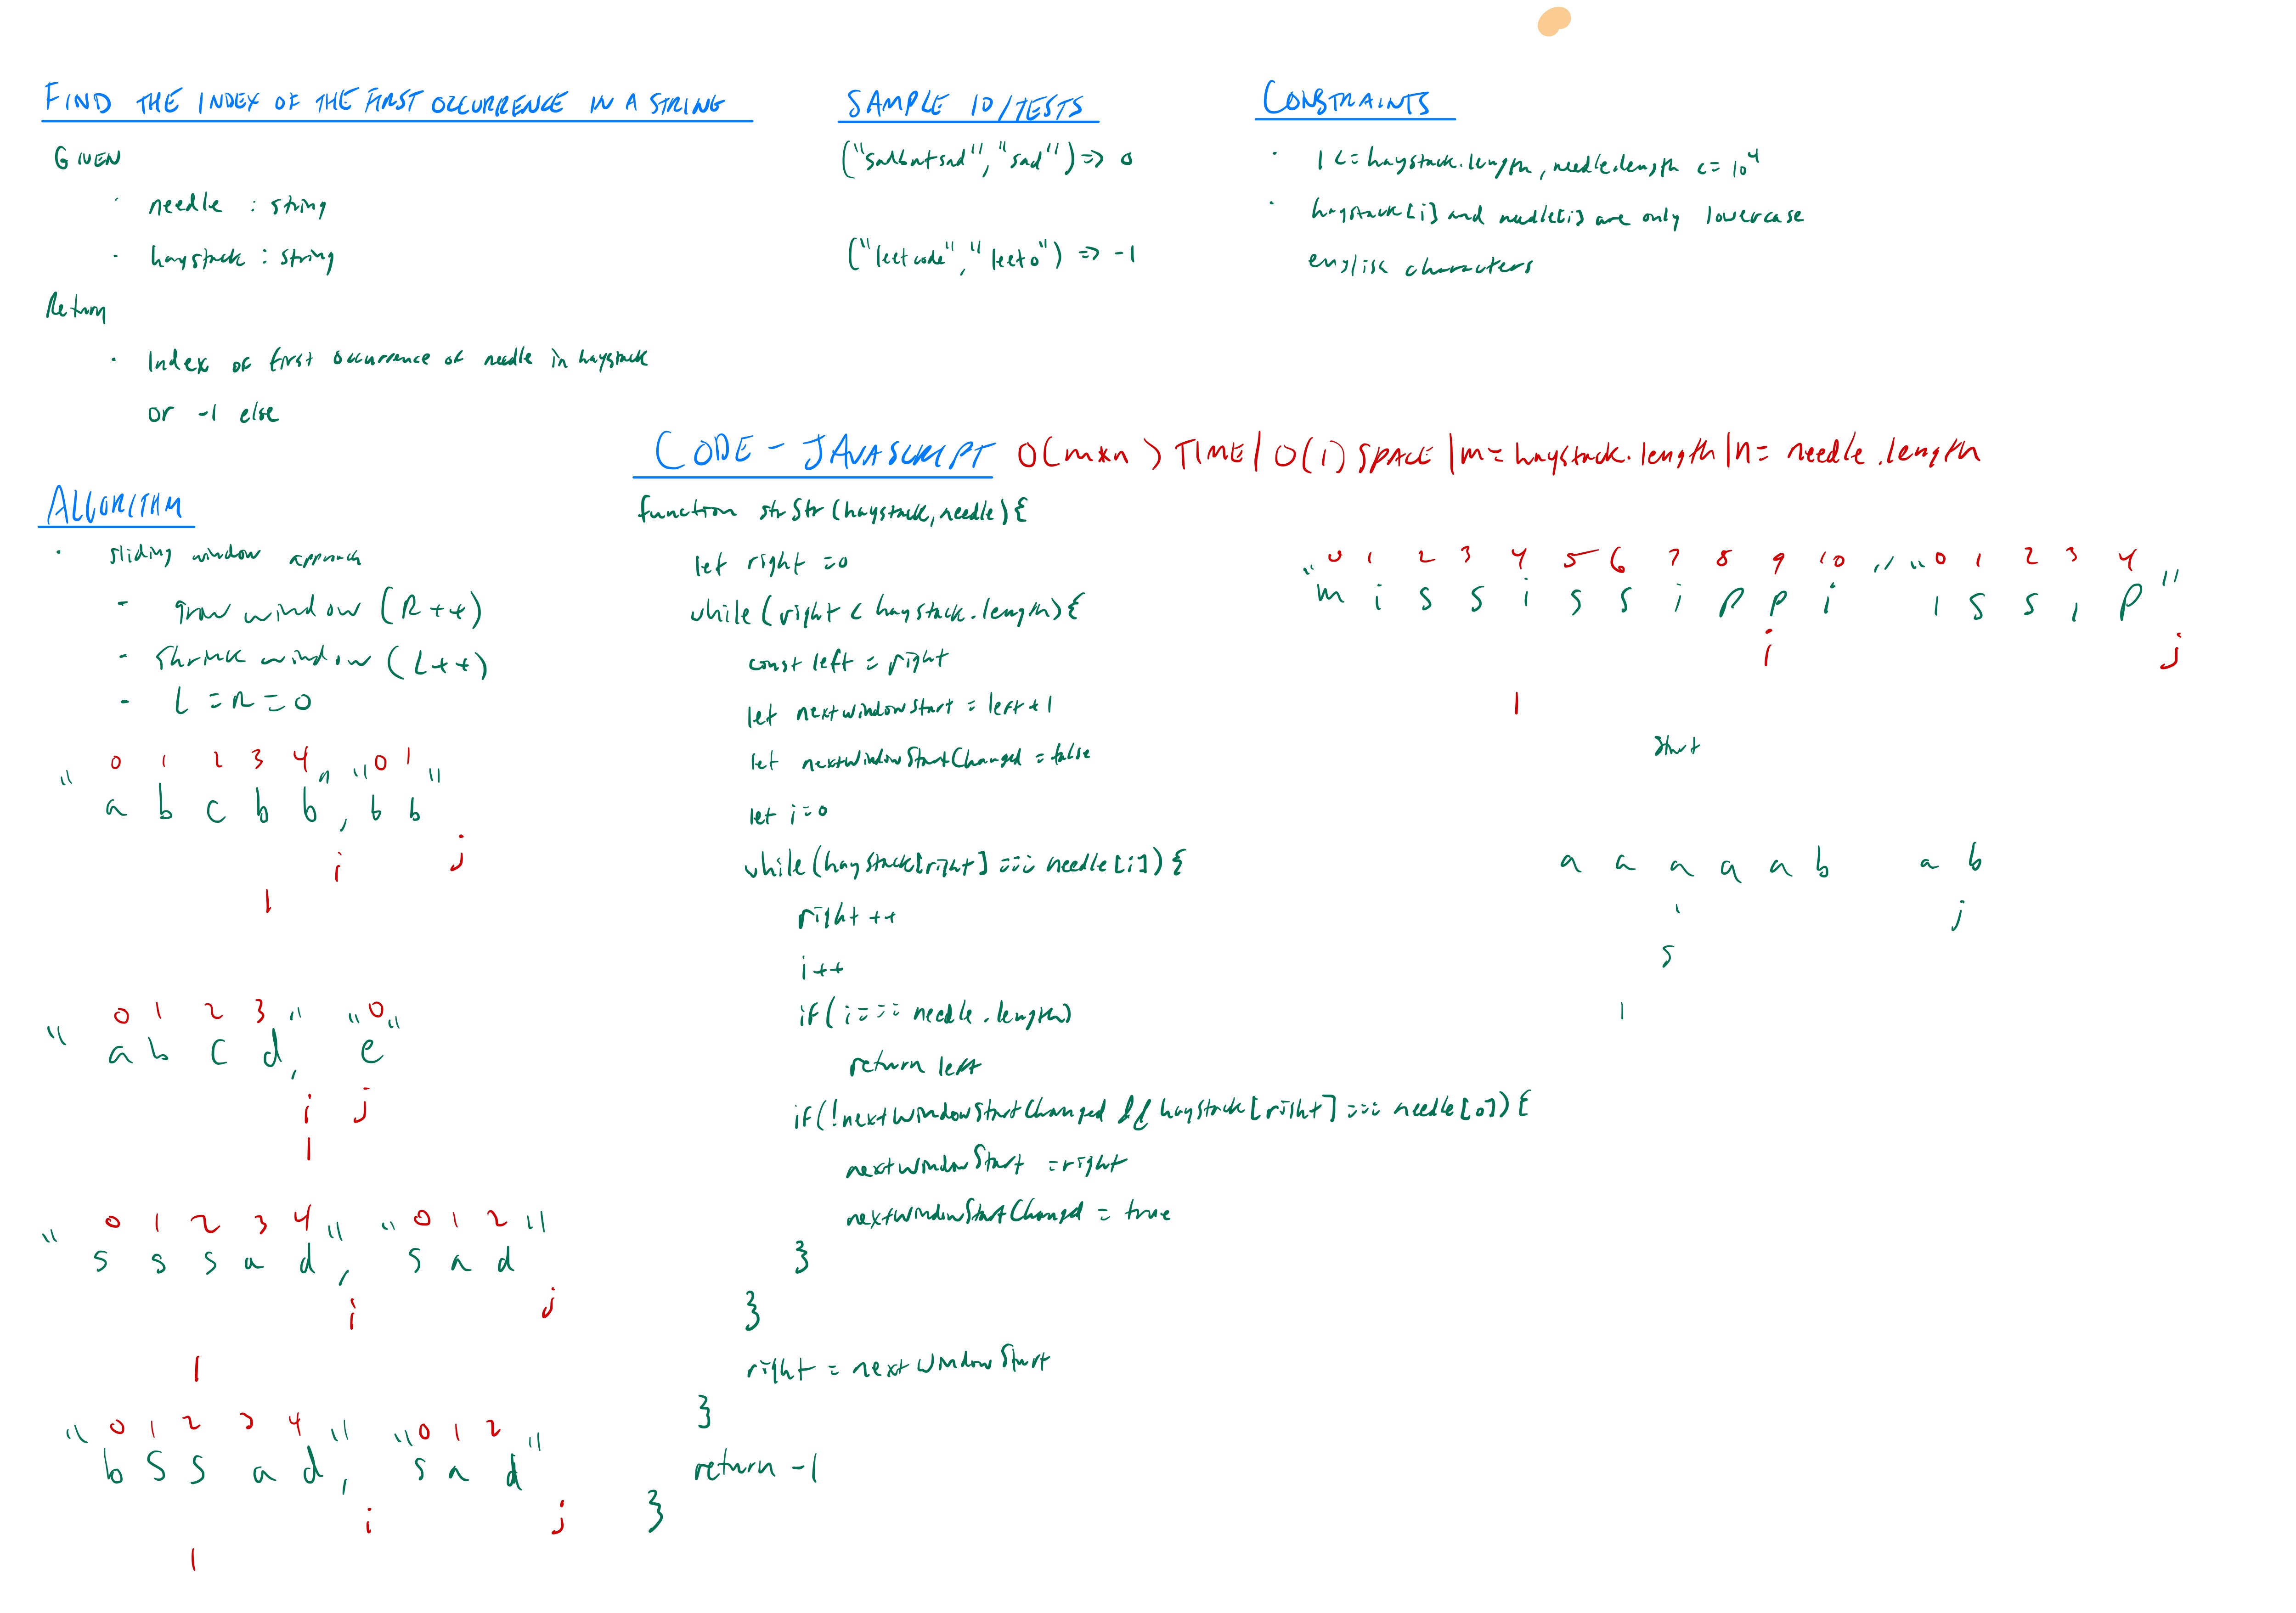 FIND THE INDEX OF THE FIRST OCCURRENCE IN A STRING
GIVEN
· needle : string
· haystack : string
Return
· Index of first occurrence of needle in haystack
or -1 else
SAMPLE IO/TESTS
("sadbutsad", "sad") => 0
("leetcode", "leeto") => -1
CONSTRAINTS
· 1 <= haystack.length, needle.length <= 10^4
· haystack[i] and needle[i] are only lowercase
english characters
ALGORITHM
· sliding window approach
- grow window (R++)
- shrink window (L++)
- L = R = 0
0 1 2 3 4 0 1
"a b c b b", "b b"
i j
l
0 1 2 3 0
"a b c d", "e"
i j
l
0 1 2 3 4 0 1 2
"s s s a d", "s a d"
i j
l
0 1 2 3 4 0 1 2
"b s s a d", "s a d"
i j
l
CODE - JAVASCRIPT O(m*n) TIME | O(1) SPACE | m = haystack.length | n = needle.length
function strStr(haystack, needle) {
let right = 0
while (right < haystack.length) {
const left = right
let nextWindowStart = left + 1
let nextWindowStartChanged = false
let i = 0
while (haystack[right] === needle[i]) {
right ++
i ++
if (i === needle.length)
return left
if (!nextWindowStartChanged && haystack[right] === needle[0]) {
nextWindowStart = right
nextWindowStartChanged = true
}
}
right = nextWindowStart
}
return -1
}
0 1 2 3 4 5 6 7 8 9 10 0 1 2 3 4
"m i s s i s s i p p i" "i s s i p"
i j
l
start
a a a a a b a b
i j
s
l